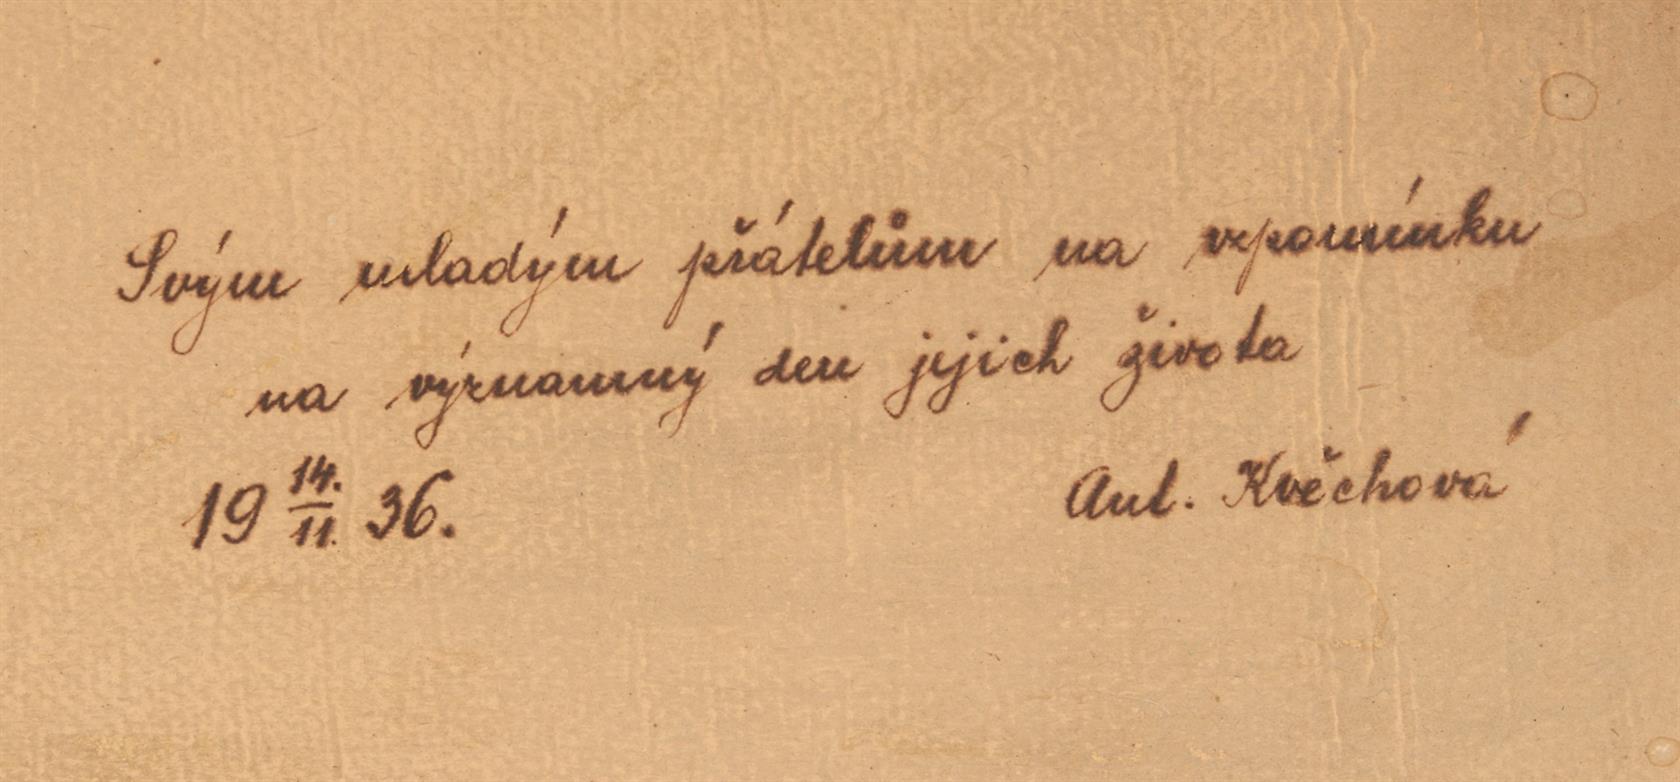 Svým mladým přátelům na vzpomínku
na významný den jejich života
19 14./11. 36.
Ant. Kvěchová